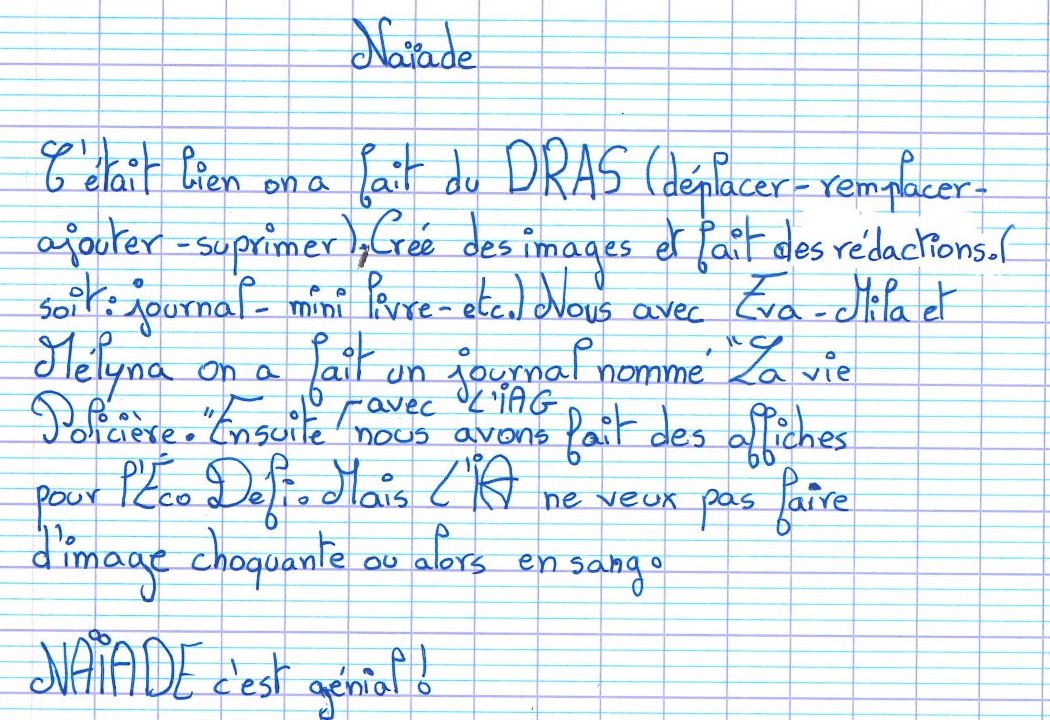 Naïade
C'était bien on a fait du DRAS (déplacer-remplacer-
ajouter-suprimer), Créé des images et fait des rédactions.(
soit: journal- mini livre-etc.) Nous avec Eva-Mila et
Mélyna on a fait un journal nommé "La vie
avec L'iAG
Policière." Ensuite nous avons fait des affiches
pour l'Éco Defi. Mais L'iA ne veux pas faire
d'image choquante ou alors en sang.
NAÏADE c'est génial!